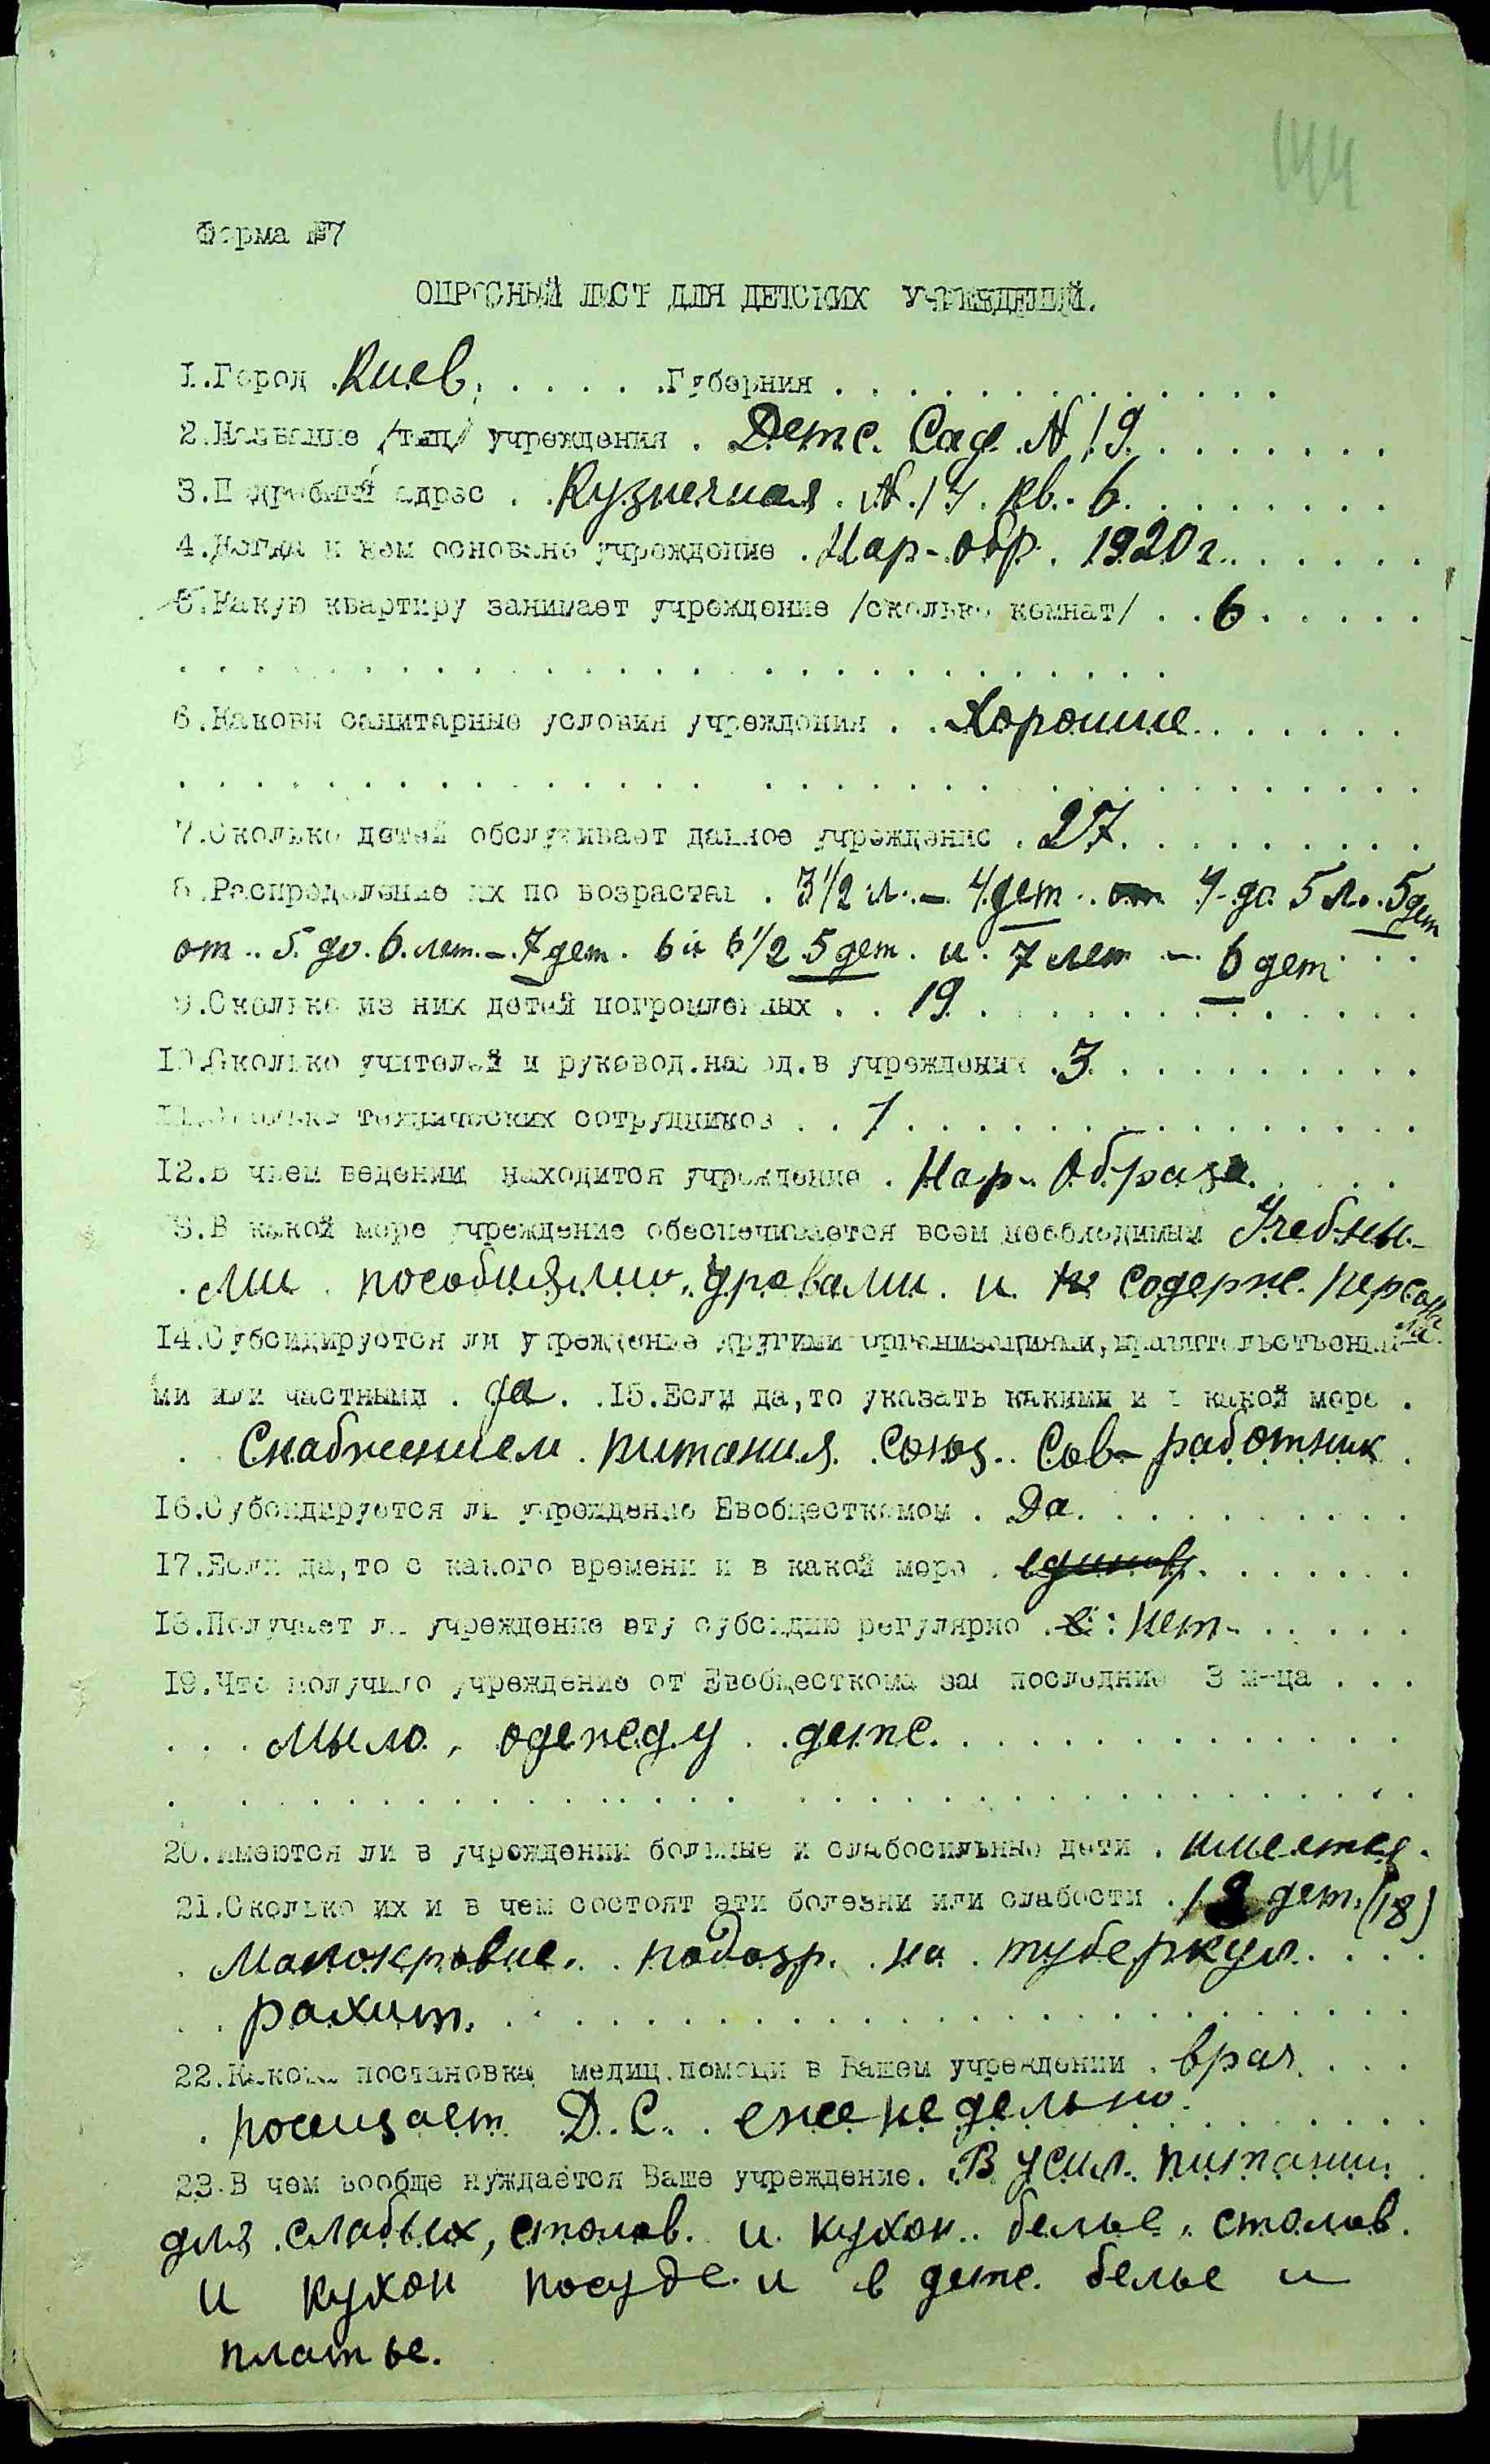 144
Форма №7
ОПРОСНЫЙ ЛИСТ ДЛЯ ДЕТСКИХ УЧРЕЖДЕНИЙ.
1.Город .Киев. . . . . .Губерния . . . . . . . . . . . . . .
2.Название /тип/ учреждения . Детс. Сад. N 19. . . . . . . .
3.Подробный адрес . . Кузнечная. N. 17. кв. 6. . . . . . . .
4.Когда и кем основано учреждение . Нар-обр. 1920г. . . . . .
5.Какую квартиру занимает учреждение /сколько комнат/ . . 6 . . . . .
6.Каковы санитарные условия учреждения . . Хорошие . . . . . .
7.Сколько детей обслуживает данное учреждение . 27. . . . . . . . .
8.Распределение их по возрастам . 3 1/2 л. - 4 дет . . 4 до 5 л. 5 дет
от . 5 до 6 лет. - 7 дет. 6 и 6 1/2 5 дет. и 7 лет - 6 дет . . .
9.Сколько из них детей погромленных . . 19 . . . . . . . . . . . .
10.Сколько учителей и руковод.наход.в учреждении .3. . . . . . . . .
11.Сколько технических сотрудников . . 1 . . . . . . . . . . . . . .
12.В чьем ведении находится учреждение . Нар. Образа. . . . .
13.В какой мере учреждение обеспечивается всем необходимым Учебны-
ми пособиями, дровами и содерж. персонала.
14.Субсидируется ли учреждение другими организациями, правительственны-
ми или частными . да . .15.Если да,то указать какими и в какой мере .
. Снабжением питания союз. Сов-работник .
16.Субсидируется ли учреждение Евобщесткомом . Да. . . . . . . . . .
17.Если да,то с какого времени и в какой мере . единов. . . . . . .
18.Получает ли учреждение эту субсидию регулярно . : Нет. . . . . .
19.Что получило учреждение от Евобщесткома за последние 3 м-ца . . .
. . . мыло, одежду детс. . . . . . . . . . . . .
20.Имеются ли в учреждении больные и слабосильные дети . имеется .
21.Сколько их и в чем состоят эти болезни или слабости . 18 дет. (18)
. Малокровие, . подозр. на туберкул. . . .
. . рахит. . . . . . . . . . . . . . . . . . . . . .
22.Какова постановка медиц.помощи в Вашем учреждении . врач . . .
. посещает Д. С. еженедельно. . . . . . . .
23.В чем вообще нуждается Ваше учреждение. В усил. питании
для слабых, столов. и кухон. белье, столов.
и кухон посуде и в детс. белье и
платье.